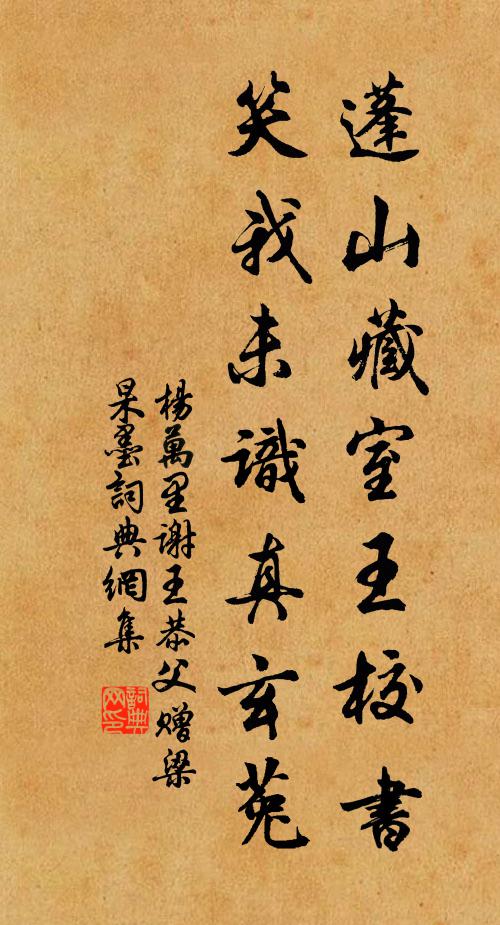 蓬山藏室王校書
笑我未識真玄菟
楊萬里謝王恭父贈梁
杲墨詞典網集
詞典
网印